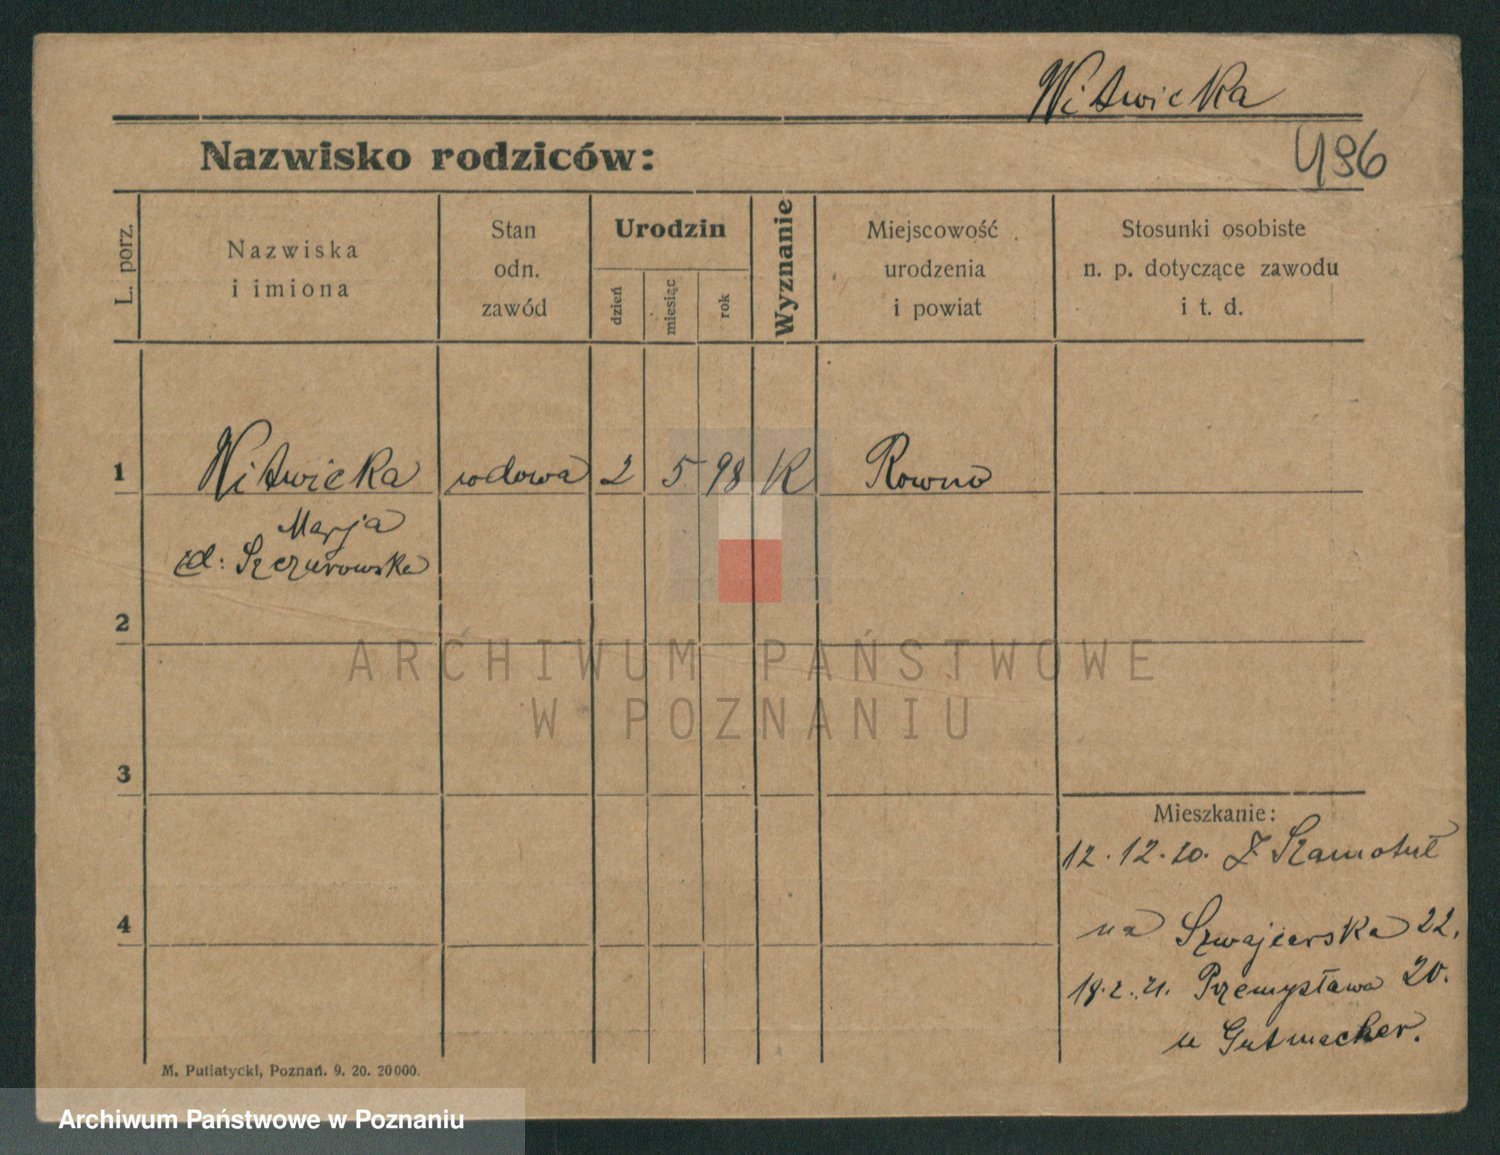 Witwicka
496
Nazwisko rodziców:
L. porz.
Nazwiska
i imiona
Stan
odn.
zawód
Urodzin
dzień
miesiąc
rok
Wyznanie
Miejscowość
urodzenia
i powiat
Stosunki osobiste
n. p. dotyczące zawodu
i t. d.
1 Witwicka wdowa 2 5 98 K Rowno
Marja
zd: Szczurowska
2
ARCHIWUM PAŃSTWOWE
W POZNANIU
3
Mieszkanie:
12.12.20. Z Szamotuł
4
na Szwajcarska 22.
18.2.21. Przemysława 20.
u Gutmacher.
M. Putiatycki, Poznań. 9. 20. 20000.
Archiwum Państwowe w Poznaniu